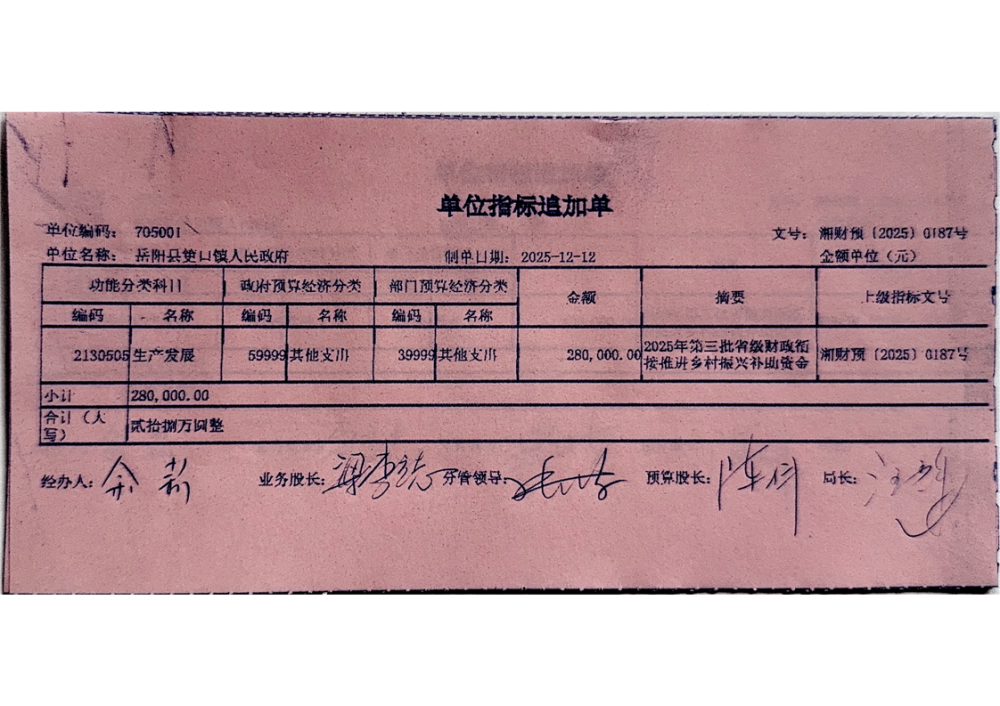 单位指标追加单
单位编码： 705001 文号： 湘财预〔2025〕0187号
单位名称： 岳阳县筻口镇人民政府 制单日期： 2025-12-12 金额单位（元）
功能分类科目 政府预算经济分类 部门预算经济分类 金额 摘要 上级指标文号
编码 名称 编码 名称 编码 名称
2130505 生产发展 59999 其他支出 39999 其他支出 280,000.00 2025年第三批省级财政衔 湘财预〔2025〕0187号
接推进乡村振兴补助资金
小计 280,000.00
合计（大 贰拾捌万圆整
写）
经办人： 业务股长： 分管领导： 预算股长： 局长：